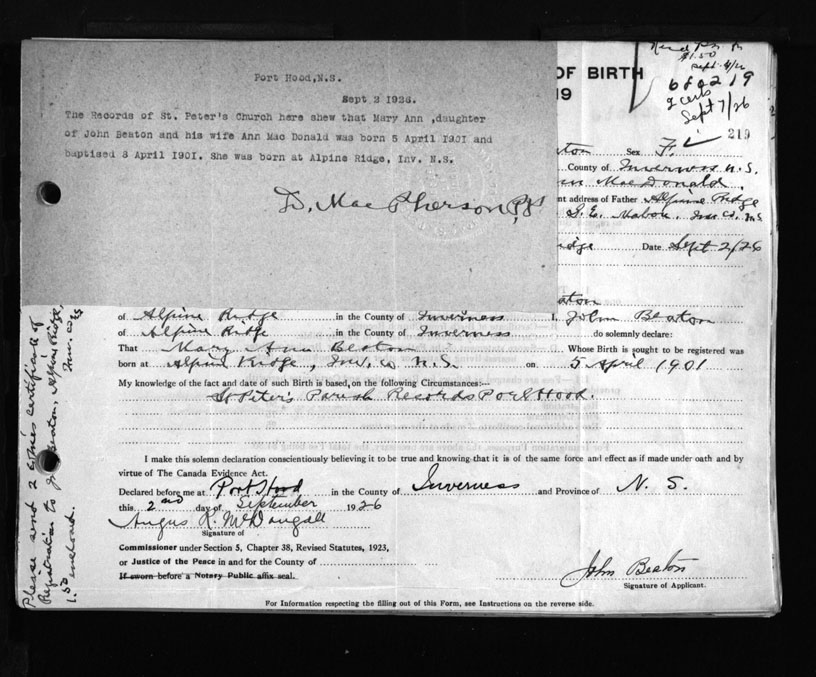 Port Hood, N.S.
Sept 2 1926.
The Records of St. Peter's Church here shew that Mary Ann ,daughter
of John Beaton and his wife Ann Mac Donald was born 5 April 1901 and
baptised 8 April 1901. She was born at Alpine Ridge, Inv. N.S.
D. Mac Pherson P.P.
OF BIRTH
19
$1.50
Sept 7/26
219
ton Sex F.
County of Inverness N.S.
nn MacDonald.
nt address of Father Alpine Ridge
Mabou, Inv. Co. N.S.
idge Date Sept 2/26
aton
of Alpine Ridge in the County of Inverness I, John Beaton
of Alpine Ridge in the County of Inverness do solemnly declare:
That Mary Ann Beaton Whose Birth is sought to be registered was
born at Alpine Ridge, Inv. Co N.S. on 5 April 1901
My knowledge of the fact and date of such Birth is based, on the following Circumstances:--
St Peter's Parish Records Port Hood.
I make this solemn declaration conscientiously believing it to be true and knowing that it is of the same force and effect as if made under oath and by
virtue of The Canada Evidence Act.
Declared before me at Port Hood in the County of Inverness and Province of N. S.
this 2nd day of September 1926
Angus R. McDougall
Signature of
Commissioner under Section 5, Chapter 38, Revised Statutes, 1923,
or Justice of the Peace in and for the County of
If sworn before a Notary Public affix seal.
John Beaton
Signature of Applicant.
For Information respecting the filling out of this Form, see Instructions on the reverse side.
Please send 2 copies certificate of
Registration to J. Beaton, Alpine Ridge,
Inv. Co. N.S.
1.50 enclosed.